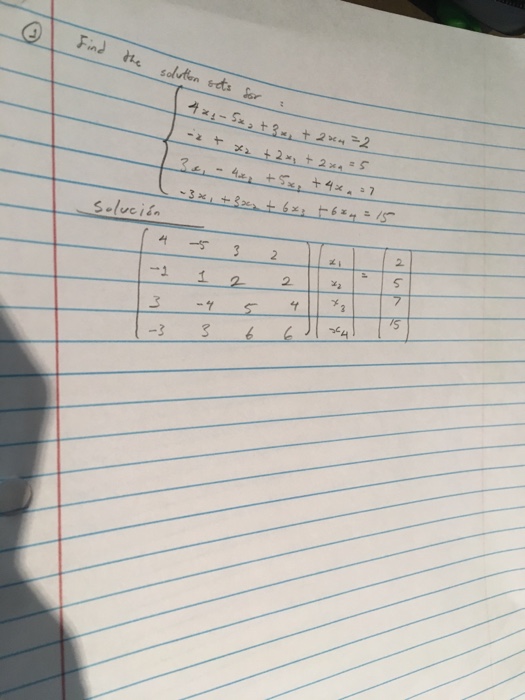 ①
Find the solution sets for :
4x₁ - 5x₂ + 3x₃ + 2x₄ = 2
-x + x₂ + 2x₃ + 2x₄ = 5
3x₁ - 4x₂ + 5x₃ + 4x₄ = 7
-3x₁ + 3x₂ + 6x₃ + 6x₄ = 15
Solución
4 -5 3 2 x₁ = 2
-1 1 2 2 x₂ 5
3 -4 5 4 x₃ 7
-3 3 6 6 x₄ 15